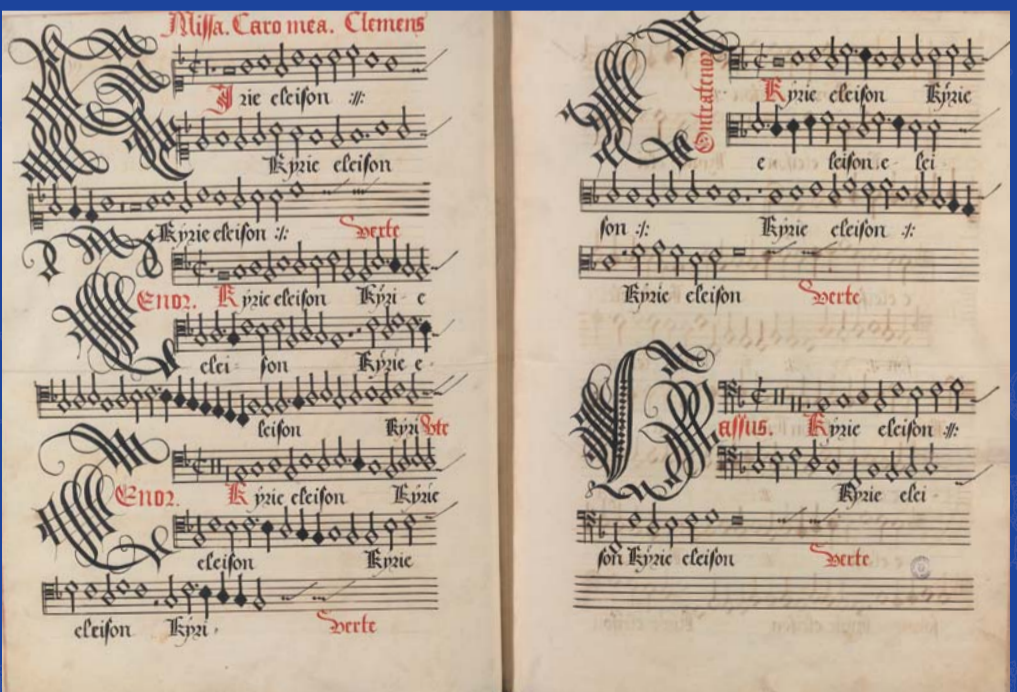 Missa. Caro mea. Clemens
Kyrie eleison :||:
Kyrie eleison
Kyrie eleison :||: Verte
Tenor. Kyrie eleison Kyri - e
elei - son Kyrie e -
leison Kyri Vte
Tenor. Kyrie eleison Kyrie
eleison Kyrie
eleison Kyri - Verte
Contratenor
Kyrie eleison Kyrie
e leison. e - lei -
son :||: Kyrie eleison :||:
Kyrie eleison Verte
Bassus. Kyrie eleison :||:
Kyrie elei -
son Kyrie eleison Verte